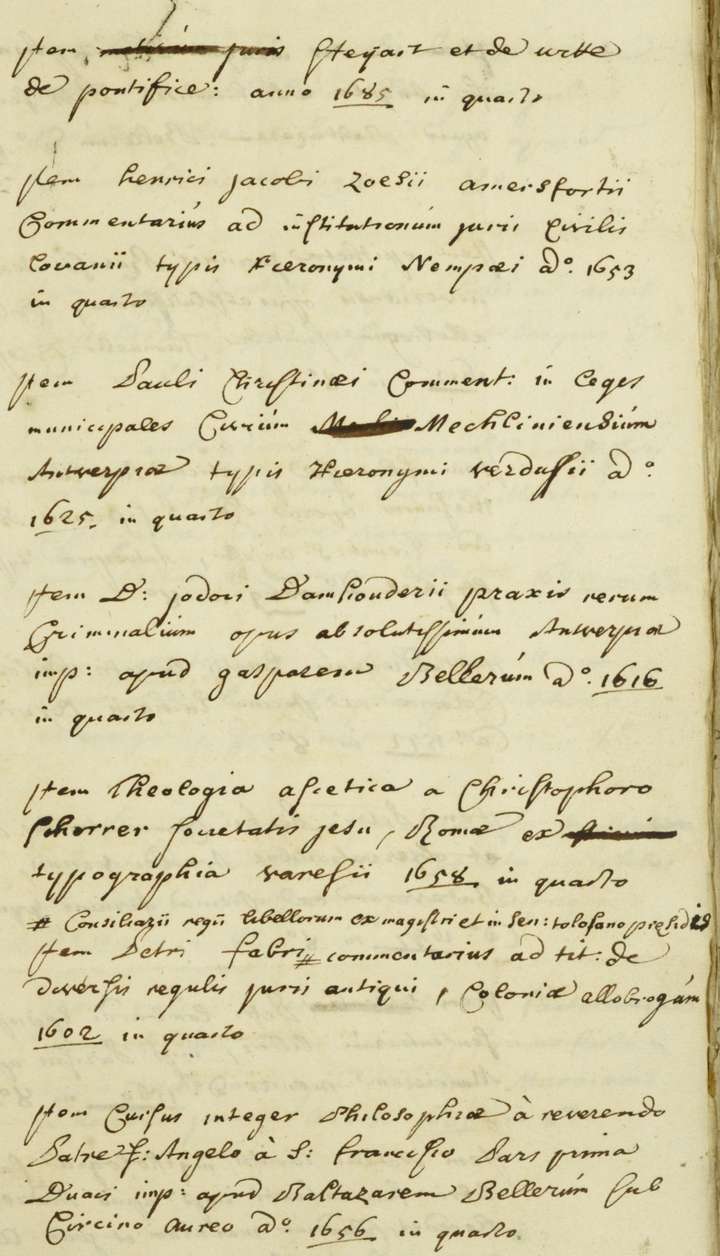 Item Steyart et de
de pontifice: anno 1685 in quarto
Item henrici jacobi Zoesii amersfortii
Commentariùs ad institutionùm juris Civilis
Lovanii typis Hieronymi Nempæi aô. 1653
in quarto
Item Pauli Christinæi Comment: in Leges
municipales Civiùm Mechliniensiùm
Antverpiæ typis Hieronymi verdussii aô.
1625. in quarto
Item D: jodoci Damhouderii praxis rerum
Criminaliùm opus absolutissimùm Antverpiæ
imp: apud gasparem Bellerùm aô. 1616
in quarto
Item Theologia ascetica a Christophoro
Schorrer societatis jesu, Romæ ex
typographia varesii 1658 in quarto
# Consiliarii regii libellorum ex magistri et in sen: tolosano præsidis
Item Petri fabri # commentarius ad tit: de
diversis regulis juris antiqui, Coloniæ allobrogùm
1602 in quarto
Item Cursus integer Philosophiæ à reverendo
Patre F: Angelo à S: francisco Pars prima
Duaci imp: apud Baltazarem Bellerùm sub
Circino Aureo aô. 1656 in quarto